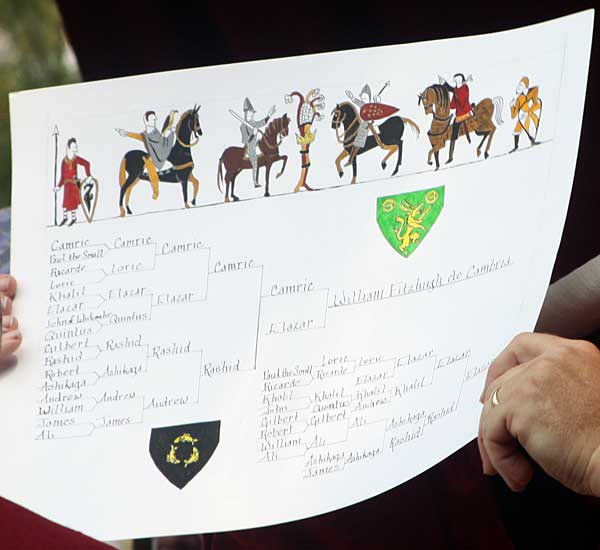 Camric
Paul the Small
Ricarde
Loric
Khalil
Elazar
John of
Quintus
Gilbert
Rashid
Robert
Ashikaga
Andrew
William
James
Ali
Camric
Loric
Elazar
Quintus
Rashid
Ashikaga
Andrew
James
Camric
Elazar
Rashid
Andrew
Camric
Rashid
Camric
Elazar
William Fitzhugh de Cambria
Paul the Small
Ricarde
Khalil
John
Gilbert
Robert
William
Ali
Loric
Ricarde
Khalil
Quintus
Gilbert
Ali
Ashikaga
James
Loric
Elazar
Khalil
Andrew
Ali
Ashikaga
Elazar
Khalil
Ashikaga
Rashid
Elazar
Rashid
Elazar